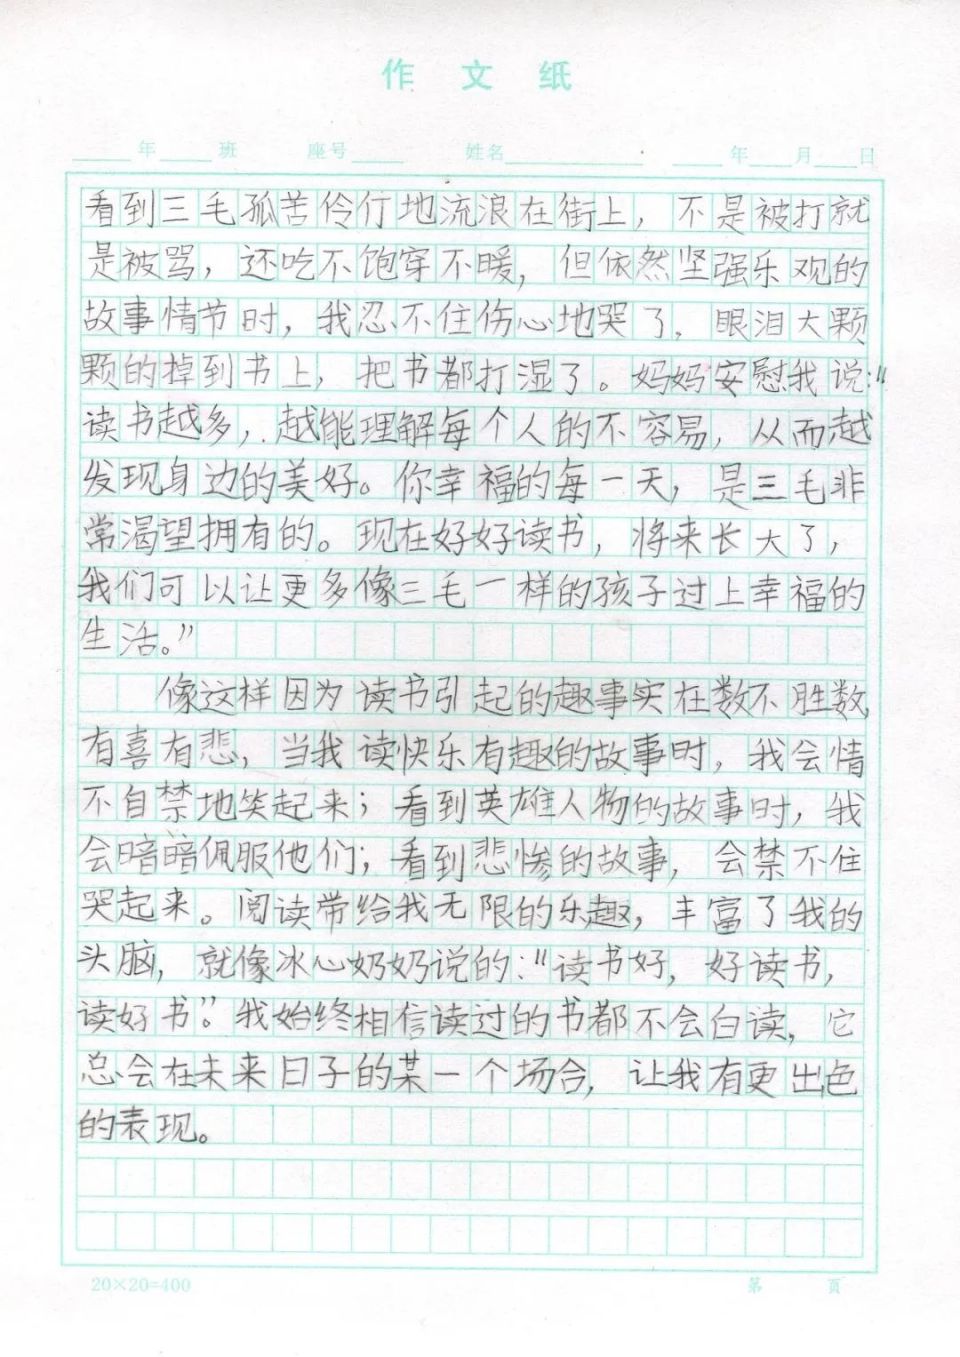 作 文 纸
____年____班 座号____ 姓名__________ ____年___月___日
看到三毛孤苦伶仃地流浪在街上，不是被打就
是被骂，还吃不饱穿不暖，但依然坚强乐观的
故事情节时，我忍不住伤心地哭了，眼泪大颗
颗的掉到书上，把书都打湿了。妈妈安慰我说：“
读书越多，越能理解每个人的不容易，从而越
发现身边的美好。你幸福的每一天，是三毛非
常渴望拥有的。现在好好读书，将来长大了，
我们可以让更多像三毛一样的孩子过上幸福的
生活。”
像这样因为读书引起的趣事实在数不胜数，
有喜有悲，当我读快乐有趣的故事时，我会情
不自禁地笑起来；看到英雄人物的故事时，我
会暗暗佩服他们；看到悲惨的故事，会禁不住
哭起来。阅读带给我无限的乐趣，丰富了我的
头脑，就像冰心奶奶说的：“读书好，好读书，
读好书”。我始终相信读过的书都不会白读，它
总会在未来日子的某一个场合，让我有更出色
的表现。
20×20=400 第 页